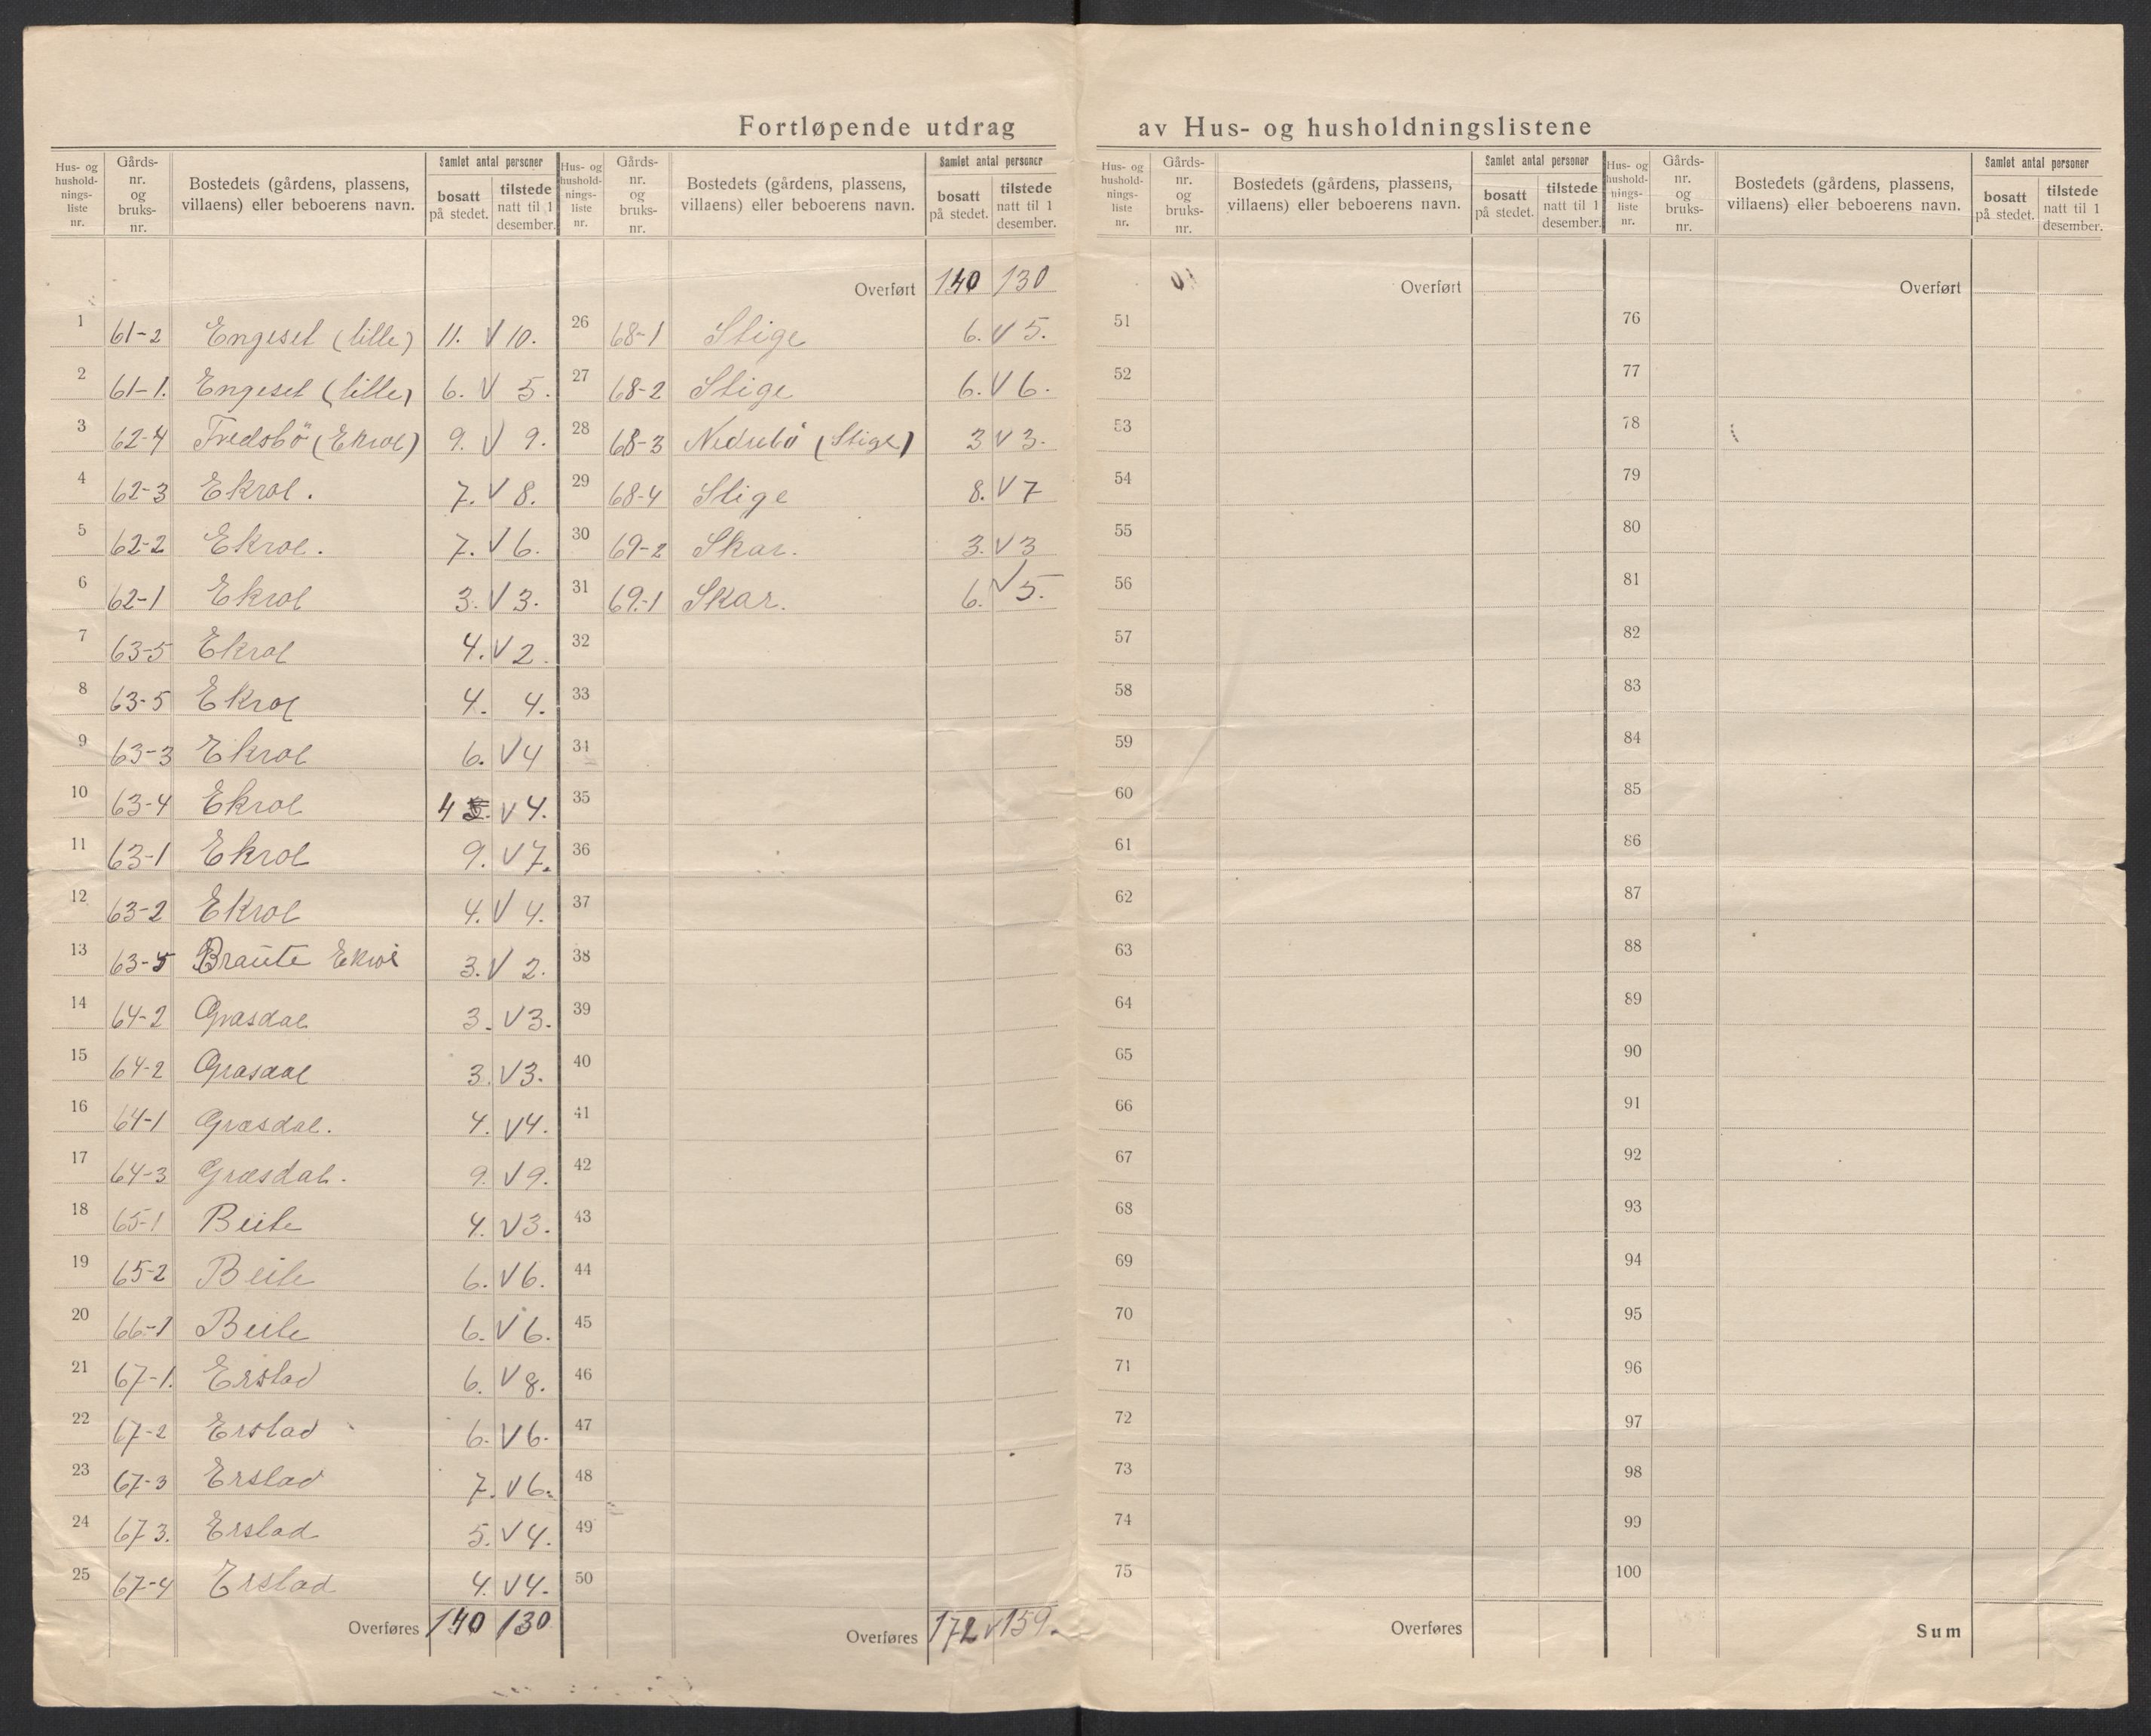 Fortløpende utdrag av Hus- og husholdningslistene
Hus- og hushold-nings-liste nr. Gårds-nr. og bruks-nr. Bostedets (gårdens, plassens, villaens) eller beboerens navn. Samlet antal personer bosatt på stedet. tilstede natt til 1 desember.
Hus- og hushold-nings-liste nr. Gårds-nr. og bruks-nr. Bostedets (gårdens, plassens, villaens) eller beboerens navn. Samlet antal personer bosatt på stedet. tilstede natt til 1 desember.
1 61-2 Engeset (lille) 11. V 10.
2 61-1. Engeset (lille) 6. V 5.
3 62-4 Fredsbö (Ekrol) 9. V 9.
4 62-3 Ekrol. 7. V 8.
5 62-2 Ekrol. 7. V 6.
6 62-1 Ekrol 3. V 3.
7 63-5 Ekrol 4. V 2.
8 63-5 Ekrol 4. 4.
9 63-3 Ekrol 6. V 4
10 63-4 Ekrol 4 5. V 4.
11 63-1 Ekrol 9. V 7.
12 63-2 Ekrol 4. V 4.
13 63-5 Braute Ekrol 3. V 2.
14 64-2 Grasdal 3. V 3.
15 64-2 Grasdal 3. V 3.
16 64-1 Græsdal. 4. V 4.
17 64-3 Græsdal. 9. V 9.
18 65-1 Beite 4. V 3.
19 65-2 Beite 6. V 6.
20 66-1 Beite 6. V 6.
21 67-1. Erstad 6. V 8.
22 67-2 Erstad 6. V 6.
23 67-3 Erstad 7. V 6.
24 67 3. Erstad 5. V 4.
25 67-4 Erstad 4. V 4.
Overføres 140 130
Overført 140 130
26 68-1 Stige 6. V 5.
27 68-2 Stige 6. V 6.
28 68-3 Nedrebö (Stige) 3 V 3.
29 68-4 Stige 8. V 7
30 69-2 Skar. 3. V 3
31 69.-1 Skar. 6. V 5.
32
33
34
35
36
37
38
39
40
41
42
43
44
45
46
47
48
49
50
Overføres 172 V 159.
Hus- og hushold-nings-liste nr. Gårds-nr. og bruks-nr. Bostedets (gårdens, plassens, villaens) eller beboerens navn. Samlet antal personer bosatt på stedet. tilstede natt til 1 desember.
Overført
51
52
53
54
55
56
57
58
59
60
61
62
63
64
65
66
67
68
69
70
71
72
73
74
75
Overføres
Hus- og hushold-nings-liste nr. Gårds-nr. og bruks-nr. Bostedets (gårdens, plassens, villaens) eller beboerens navn. Samlet antal personer bosatt på stedet. tilstede natt til 1 desember.
Overført
76
77
78
79
80
81
82
83
84
85
86
87
88
89
90
91
92
93
94
95
96
97
98
99
100
Sum